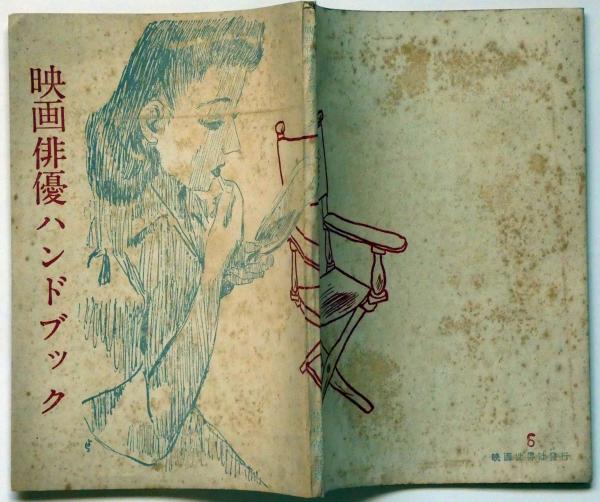 映画俳優ハンドブック
6
映画世界社發行